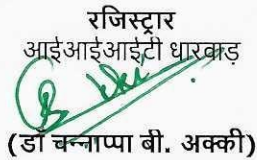 रजिस्ट्रार
आईआईआईटी धारवाड़
(डॉ चन्नाप्पा बी. अक्की)